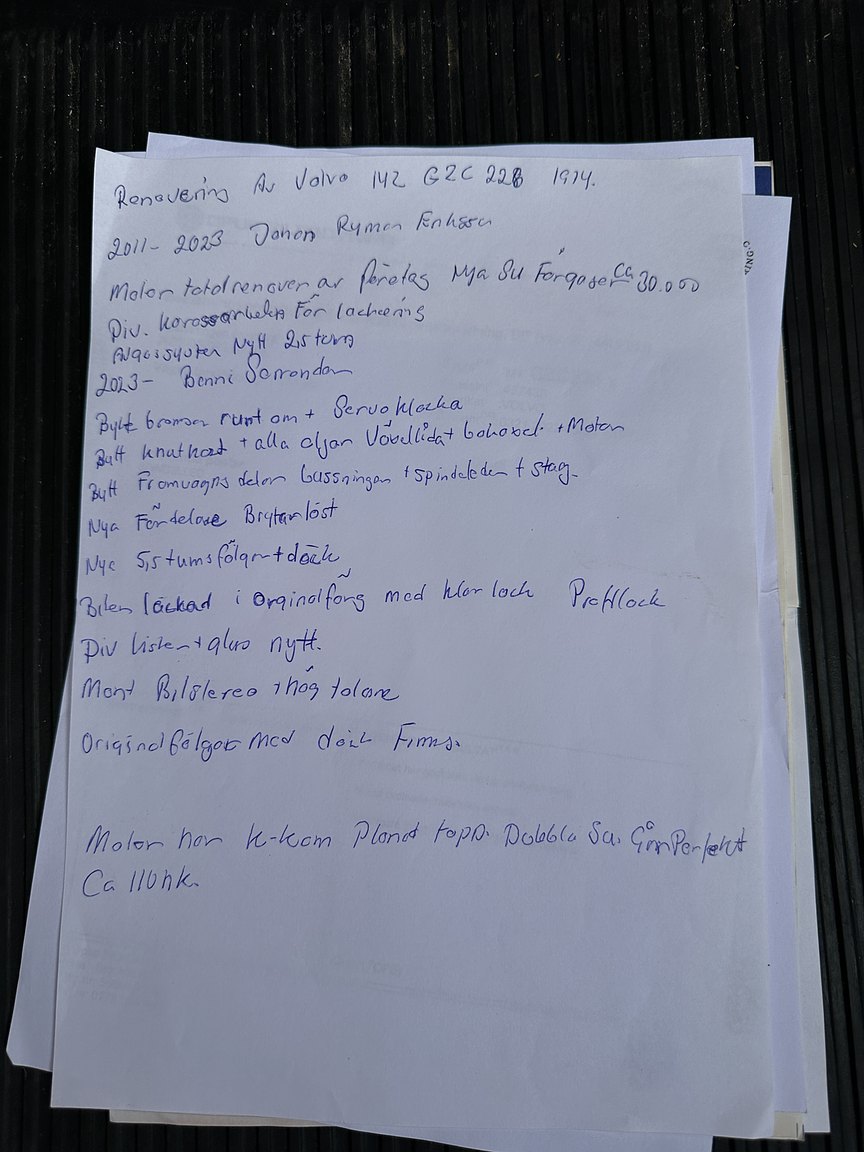 Renovering Av Volvo 142 GZC 228 1974.
2011- 2023 Johan Ryman Eriksson
Motor totalrenover av företag Nya Su Förgaser Ca 30.000
Div. karossarbeten För lackering
Avgassystem Nytt 2,5 tum
2023- Benni
Bytt bromsar runt om + Servoklocka
Bytt knutkors + alla oljor Växellåda + bakaxel + Motor
Bytt Framvagns delar bussningar + spindelleder + stag.
Nya Fördelare Brytarlöst
Nya 5,5 tums fälgar + däck
Bilen lackad i Orginalfärg med klar lack Proffslack
Div lister + glas nytt.
Mont Bilstereo + hög talare
Originalfälgar med däck Finns.
Motor har K-kam Planat topp. Dubbla Su. Går Perfekt
Ca 110hk.
G.ONIA